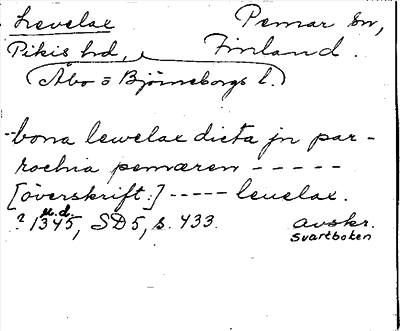 Levelax Pemar sn,
Pikis hd, Finland.
(Åbo o Björneborgs l.)
-bona lewelax dicta jn par-
rochia pemæren - - - - -
[överskrift:] ----- leuelax.
u.d.
? 1345, SD5, s. 433. avskr.
svartboken